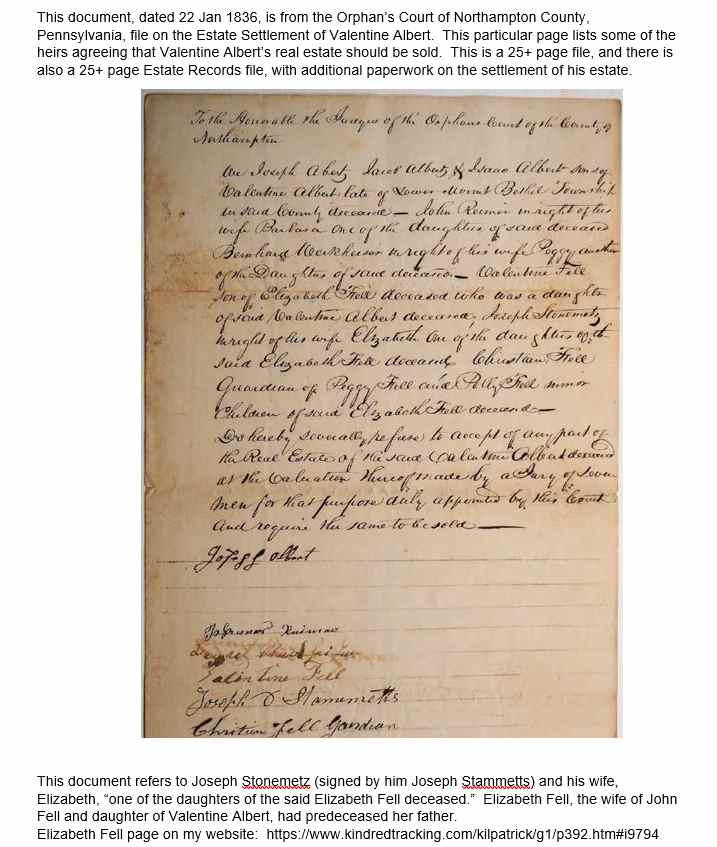 This document, dated 22 Jan 1836, is from the Orphan's Court of Northampton County,
Pennsylvania, file on the Estate Settlement of Valentine Albert. This particular page lists some of the
heirs agreeing that Valentine Albert's real estate should be sold. This is a 25+ page file, and there is
also a 25+ page Estate Records file, with additional paperwork on the settlement of his estate.
To the Honorable the Judges of the Orphans Court of the County of
Northampton
We Joseph Albert, Jacob Albert, & Isaac Albert sons of
Valentine Albert late of Lower Mount Bethel Township
in said County deceased — John Reimer in right of his
wife Barbara one of the daughters of said deceased
Bernhard in right of his wife Peggy another
of the Daughters of said deceased — Valentine Fell
son of Elizabeth Fell deceased who was a daughter
of said Valentine Albert deceased, Joseph Stonemetz
in right of his wife Elizabeth One of the daughters of the
said Elizabeth Fell deceased Christian Fell
Guardian of Peggy Fell and Polly Fell minor
Children of said Elizabeth Fell deceased —
Do hereby severally refuse to accept of any part of
the Real Estate of the said Valentine Albert deceased
at the Valuation thereof made by a Jury of Seven
men for that purpose duly appointed by this Court
and require the same to be sold —
albert
Valentine Fell
Joseph Stammetts
Christian Fell Gardian
This document refers to Joseph Stonemetz (signed by him Joseph Stammetts) and his wife,
Elizabeth, "one of the daughters of the said Elizabeth Fell deceased." Elizabeth Fell, the wife of John
Fell and daughter of Valentine Albert, had predeceased her father.
Elizabeth Fell page on my website: https://www.kindredtracking.com/kilpatrick/g1/p392.htm#i9794